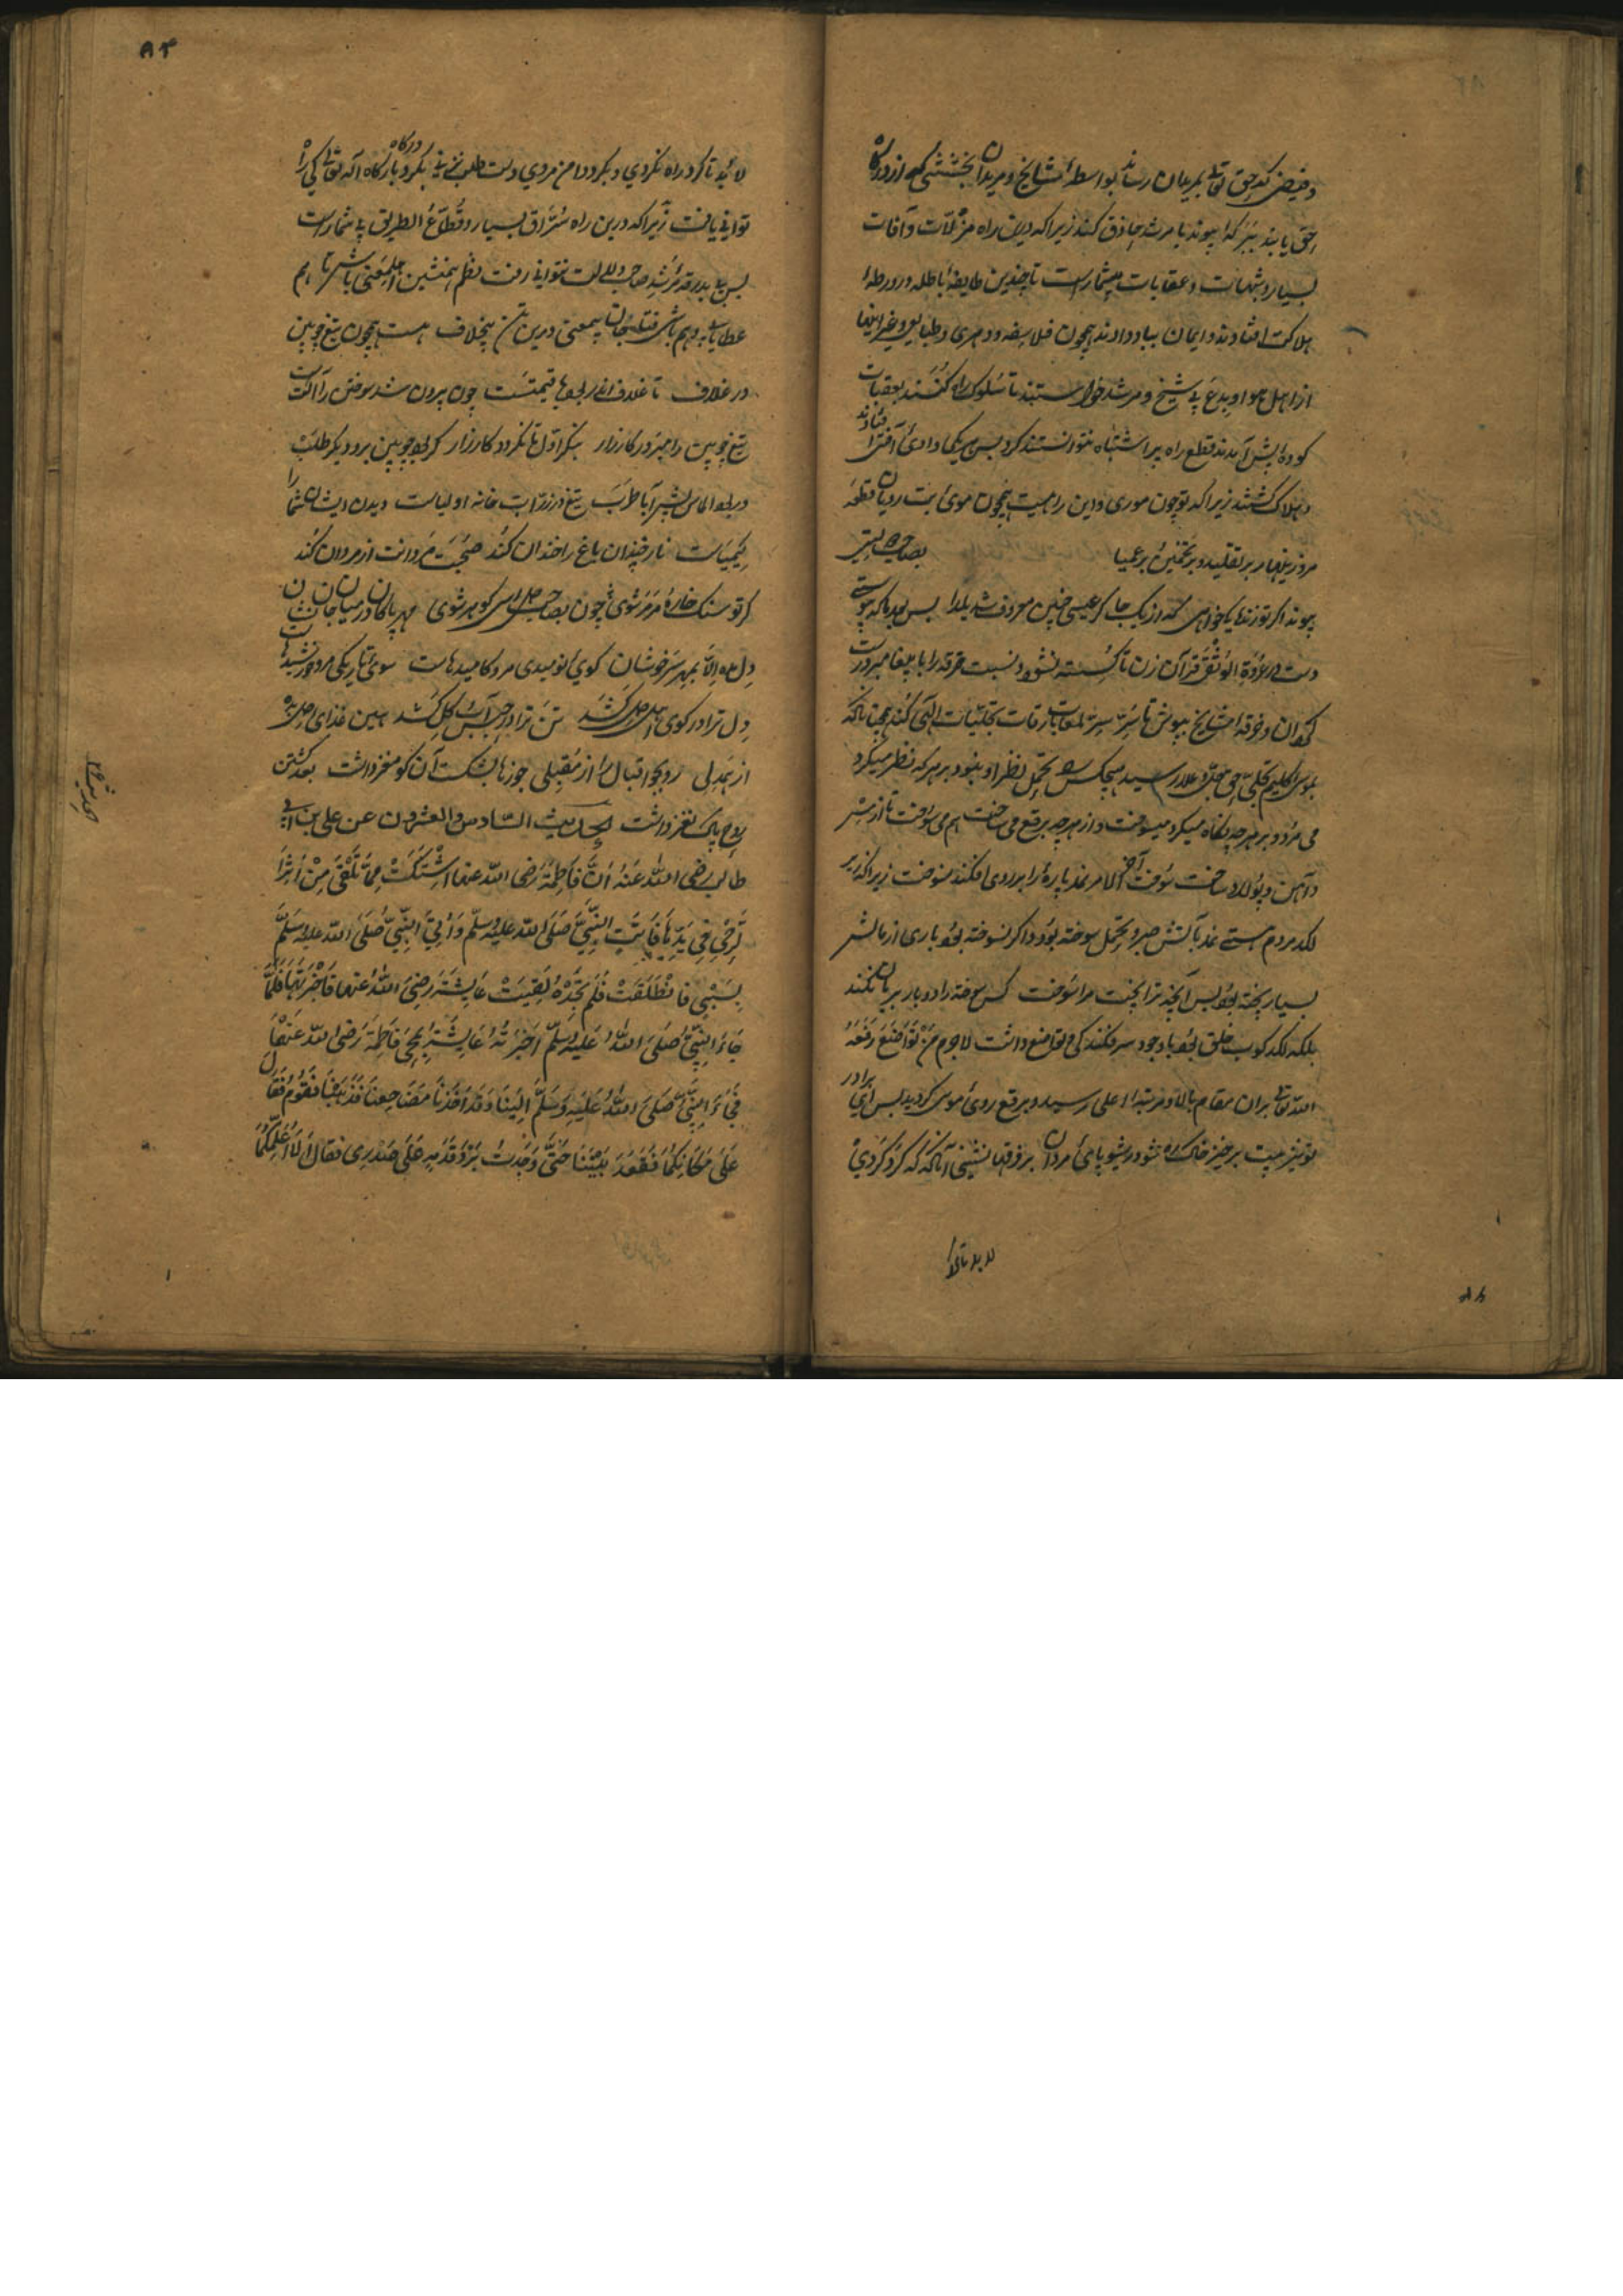 و فیضی که حق تعالی بمریدان رساند بواسطهٔ مشایخ و مریدان بخششی که از درگاه
حق یابند ببرکهٔ پیوند با مرشد حاذق کنند زیراکه درین راه مزلّات و آفات
بسیار و شبهات و عقابات بیشمارست تا چندین طایفهٔ باطله در ورطهٔ
هلاکت افتادند و ایمان بباد دادند همچون فلاسفه و دهری و طبایعی و غیر اینها
از اهل هوا و بدع بی شیخ و مرشد خواستند تا سلوک راه کنند بعقبات
کوده پیش آمدند قطع راه پر اشتباه نتوانستند کرد پس هریکی در وادیٔ آفتی افتادند
و هلاک گشتند زیراکه تو چون موری و این راهیست همچون موی بت رویان قطعه
مرو زینهار بر تقلید و بر تخمین و بر عمیا
پیوند اگر تو زندهای خواهی که از یک چاکر عیسی چنین معروف شد یلدا پس بعد ماکه پیوستی
دست در عروة الوثقی قرآن زن تا گسسته نشود و نسبت خرقه را با پیغامبر درست
گردان و خرقهٔ مشایخ بپوش تا سرّ سیر لمعات بارقات تجلیّات الهی کند همچنانکه
بموسی کلیم تجلی حق جلّ و علا در رسید هیچکس را تحمل نظر او نبود بر هر که نظر میکرد
می مرد و بر هرچه نگاه میکرد میسوخت و از هرچه برقع می ساخت هم می سوخت تا از مس
و آهن و پولاد ساخت سوخت آخر الامر نمد پارهٔ را بر روی افکند نسوخت زیراکه زیر
لگد مردم هستی نمد بآتش صبر و تحمل سوخته بود و اگر نسوخته بود باری از مالش
بسیار پخته بود پس آنچه ترا پخت مرا سوخت کس سوخته را دو بار بریان نکند
بلکه لگدکوب خلق بود با وجود سر فکندگی تواضع داشت لاجرم من تواضع رفعه
الله تعالی بدان مقام بالا و مرتبهٔ اعلی رسید و برقع روی موسی گردید پس ای برادر
تو نیز میت برخیز خاک ره شو در شو پا می مردان بر فرقها نشینی آنگه که گرد گردی
لابد تا گرد
۸۴
لابد تا گرد راه نگردی و بگرد دامن مردی دست طلب نزنی بگرد بارگاه درگاه اله تعالی کی راه
توانی یافت زیراکه درین راه سرّاق بسیار و قطّاع الطریق بی شمارست
پس بی بدرقهٔ مرشد صاحب ولایت نتوانی رفت نظم همنشین اهل معنی باش تا هم
عطا یابی و هم باشی فتا جان بی معنی درین تن بیخلاف هست همچون تیغ چوبین
در غلاف تا غلاف اندر بود با قیمتست چون برون شد سوختن را آلت است
تیغ چوبین را مبر در کارزار بنگر اول تا نگردد کار زار گر بود چوبین برو دیگر طلب
ور بود الماس پیش آ با طرب تیغ در زرّادخانهٔ اولیاست دیدن ایشان شما را
کیمیاست نار خندان باغ را خندان کند صحبت مردانت از مردان کند
گر تو سنگ خاره و مرمر شوی چون بصاحب دل رسی گوهر شوی مهر پاکان در میان جان نشان
دل مده الّا بمهر سرخوشان کوی نومیدی مرو کامیدهاست سوی تاریکی مرو خورشیدهاست
دل ترا در کوی اهل دل کشد تن ترا در حبس آب و گل کشد هین غذای دل بده
از همدلی رو بجو اقبال را از مقبلی جوزها بشکست آن کو مغز داشت بعد کشتن
روح پاک نغز داشت الحدیث السادس والعشرون عن علی بن ابی
طالب رضی الله عنه انّ فاطمة رضی الله عنها اشتکت ممّا تلقی من اثر
الرّحی فی یدها فاتت النّبیّ صلی الله علیه وسلّم و اتی النّبیّ صلی الله علیه وسلّم
بسبی فانطلقت فلم تجده لقیت عایشة رضی الله عنها فاخبرتها فلمّا
جاء النّبیّ صلی الله علیه وسلّم اخبرته عایشة بمجیء فاطمة رضی الله عنها
فجاء النّبیّ صلی الله علیه وسلّم الینا و قد اخذنا مضاجعنا فذهبنا نقوم فقال
علی مکانکما فقعد بیننا حتّی وجدت برد قدمیه علی صدری فقال الا اعلّمکما